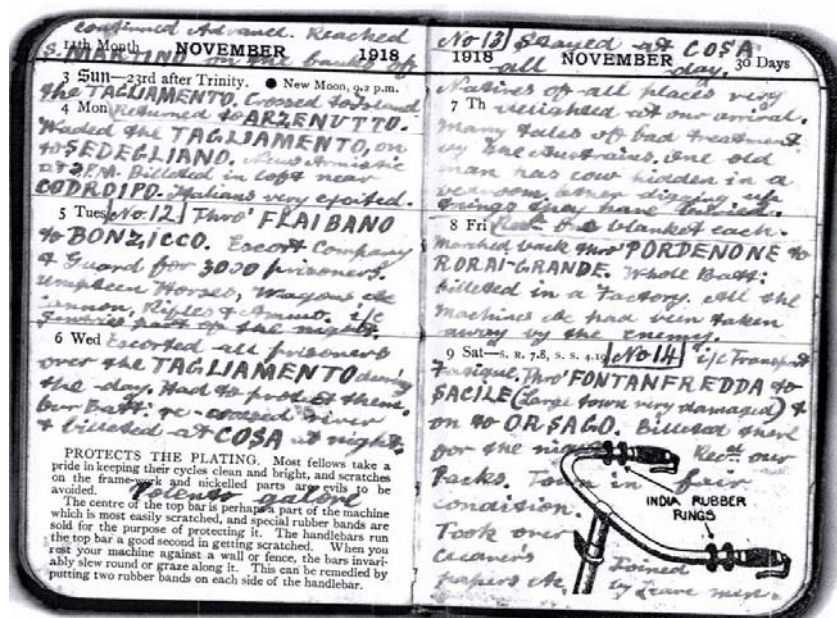 continued Advance. Reached
S. MARTINO on the banks of
11th Month NOVEMBER 1918
3 Sun—23rd after Trinity. ● New Moon, 9.2 p.m.
the TAGLIAMENTO. Crossed to Island
4 Mon Returned to ARZENUTTO.
Waded the TAGLIAMENTO, on
to SEDEGLIANO. News Armistic
at 3 P.M. Billeted in loft near
CODROIPO. Italians very excited.
5 Tues No. 12 Thro' FLAIBANO
to BONZICCO. Escort Company
& Guard for 3000 prisoners.
umpteen Horses, Wagons &c
Cannon, Rifles & Ammo. i/c
Sentries part of the night.
6 Wed Escorted all prisoners
over the TAGLIAMENTO during
the day. Had to protect them.
Our Batt: re-crossed river
& billeted at COSA at night.
PROTECTS THE PLATING. Most fellows take a
pride in keeping their cycles clean and bright, and scratches
on the frame-work and nickelled parts are evils to be
avoided. Polento galore
The centre of the top bar is perhaps a part of the machine
which is most easily scratched, and special rubber bands are
sold for the purpose of protecting it. The handlebars run
the top bar a good second in getting scratched. When you
rest your machine against a wall or fence, the bars invari-
ably slew round or graze along it. This can be remedied by
putting two rubber bands on each side of the handlebar.
No 13 Stayed at COSA
1918 NOVEMBER 30 Days
all day.
Natives of all places very
7 Th delighted at our arrival.
Many tales of bad treatment
by the Austrains. One old
man has cow hidden in a
bedroom, other digging up
things they have buried.
8 Fri Rect. one blanket each.
Marched back thro' PORDENONE to
RORAI-GRANDE. Whole Batt:
billeted in a Factory. All the
machines &c had been taken
away by the enemy.
9 Sat—S. R. 7.8, S. S. 4.19 No 14 i/c Transport
Fatigue. Thro' FONTANFREDDA to
SACILE (Large town very damaged) &
on to ORSAGO. Billeted there
for the night. Recd our
Packs. Town in fair
condition.
INDIA RUBBER
RINGS
Took over
papers &c.
Joined
by leave men.